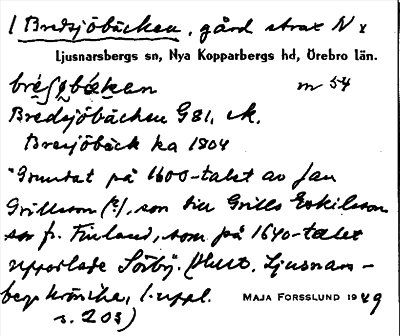 1 Bredsjöbäcken, gård strax N x
Ljusnarsbergs sn, Nya Kopparbergs hd, Örebro län.
m 54
Bredsjöbäcken G 81, ek.
Bresjöbäck ka 1804
"Grundat på 1600-talet av Jan
Grillsson (?), son till Grills Eskilsson
fr. Finland, som på 1640-talet
upptodlade Sörby. (Hult, Ljusnars-
bergs krönika, 1. uppl.
MAJA FORSSLUND 1949
s. 203)